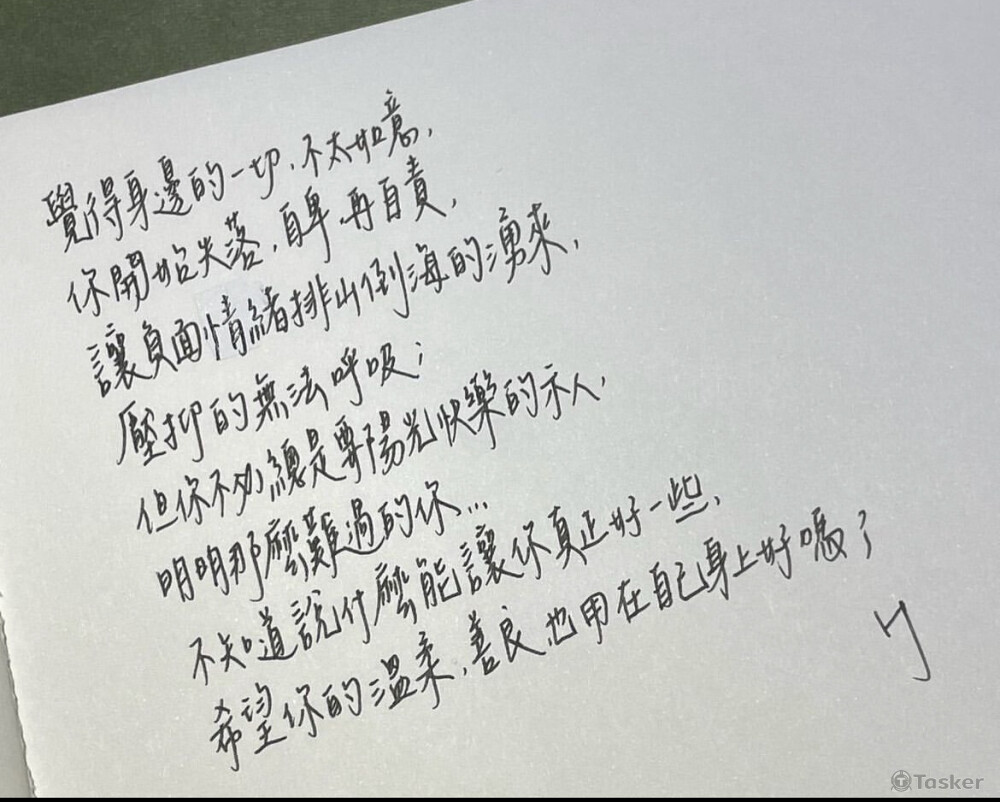 覺得身邊的一切，不太如意，
你開始失落，自卑，再自責，
讓負面情緒排山倒海的湧來，
壓抑的無法呼吸；
但你不必總是要陽光快樂的示人，
明明那麼難過的你...
不知道說什麼能讓你真正好一些，
希望你的溫柔，善良，也用在自己身上好嗎？
Y
Tasker